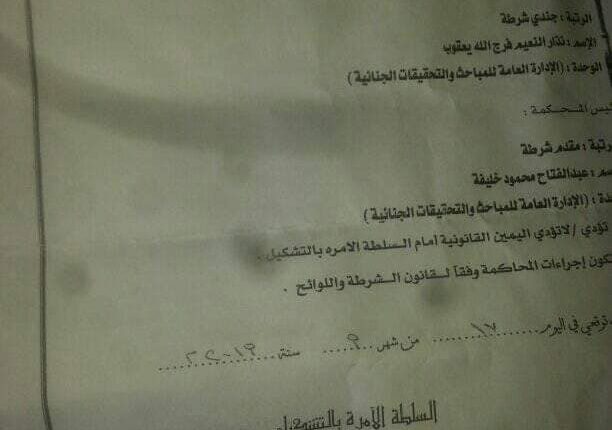 الرتبة : جندي شرطة
الإسم : نذار النعيم فرج الله يعقوب
الوحدة : (الإدارة العامة للمباحث والتحقيقات الجنائية)
المحكمة :
مقدم شرطة
عبدالفتاح محمود خليفة
(الإدارة العامة للمباحث والتحقيقات الجنائية)
تؤدي / لاتؤدي اليمين القانونية أمام السلطة الامره بالتشكيل .
إجراءات المحاكمة وفقاً لقانون الشرطة واللوائح .
في اليوم ........١٧........ من شهر ...٩... سنة
السلطة الآمرة بالتشكيل